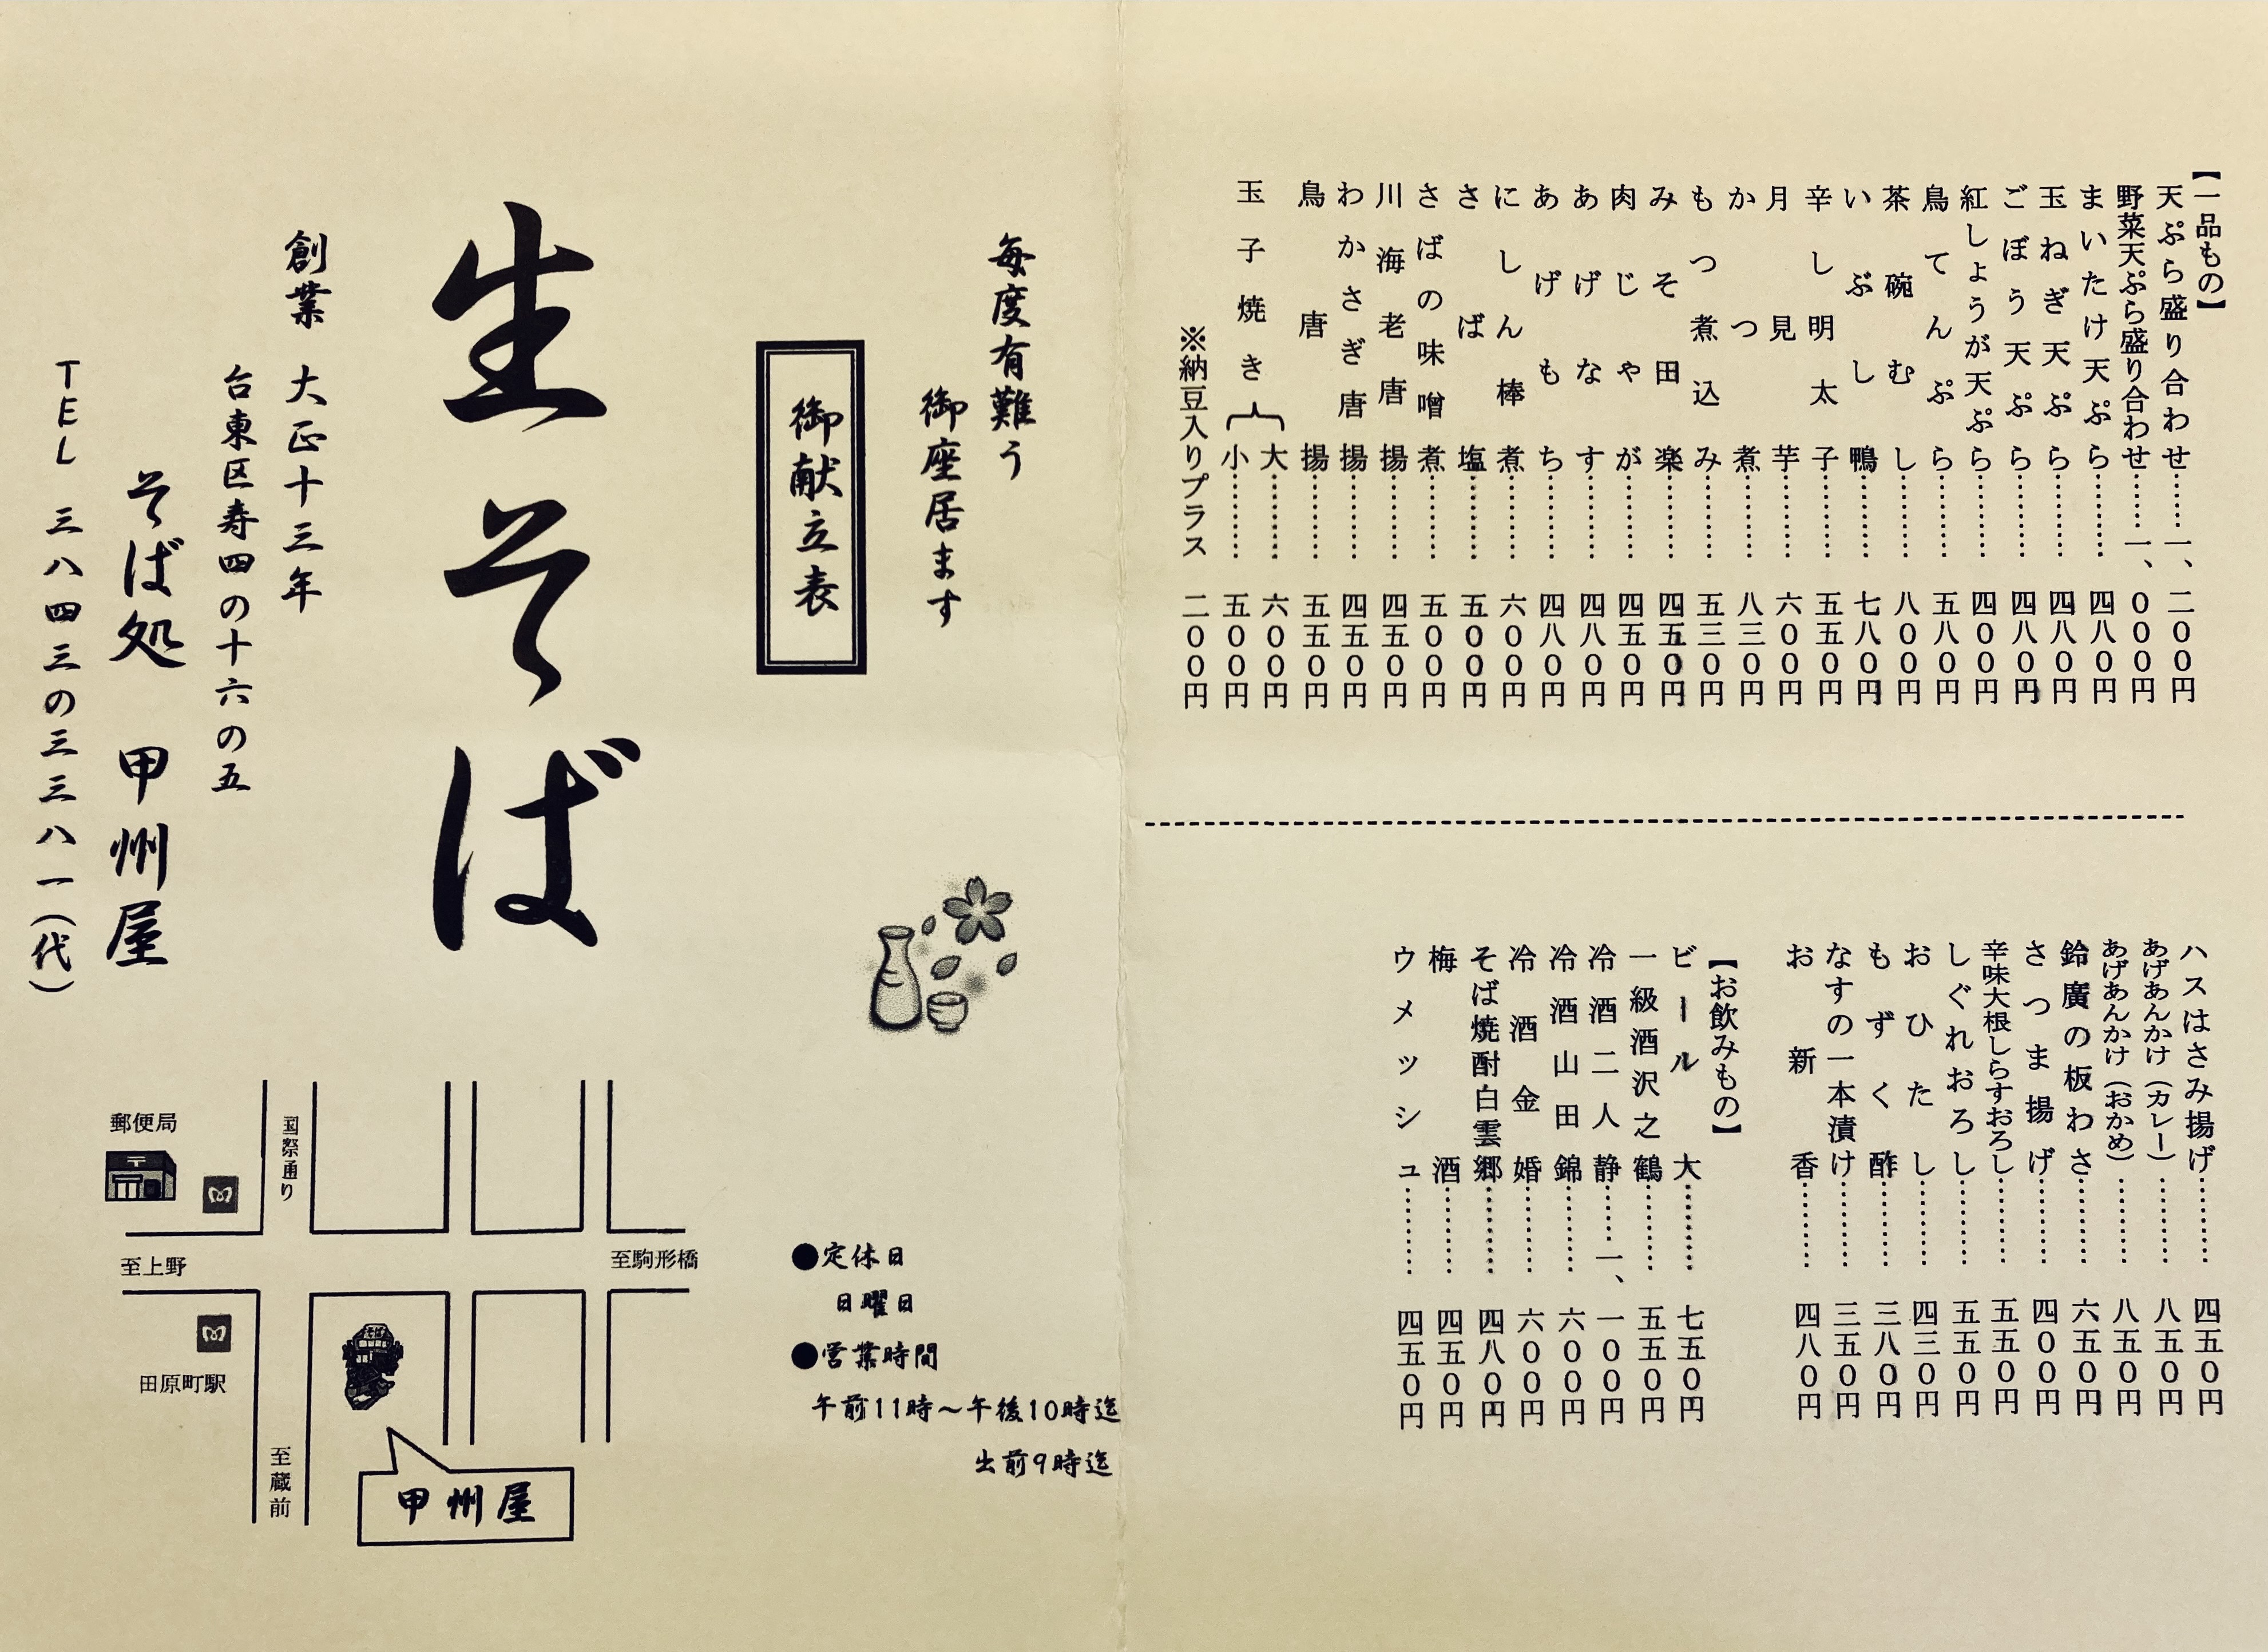 【一品もの】
天ぷら盛り合わせ………一、二〇〇円
野菜天ぷら盛り合わせ………一、〇〇〇円
まいたけ天ぷら………四八〇円
玉ねぎ天ぷら………四八〇円
ごぼう天ぷら………四八〇円
紅しょうが天ぷら………四〇〇円
鳥てんぷら………五八〇円
茶碗むし………八〇〇円
いぶし鴨………七八〇円
辛し明太子………五五〇円
月見芋………六〇〇円
かつ煮………八三〇円
もつ煮込み………五三〇円
みそ田楽………四五〇円
肉じゃが………四五〇円
あげなす………四八〇円
あげもち………四八〇円
にしん棒煮………六〇〇円
さば塩………五〇〇円
さばの味噌煮………五〇〇円
川海老唐揚………四五〇円
わかさぎ唐揚………四五〇円
鳥唐揚………五五〇円
玉子焼き
大………六〇〇円
小………五〇〇円
※納豆入りプラス 二〇〇円
ハスはさみ揚げ………四五〇円
あげあんかけ（カレー）………八五〇円
あげあんかけ（おかめ）………八五〇円
鈴廣の板わさ………六五〇円
さつま揚げ………四〇〇円
辛味大根しらすおろし………五五〇円
しぐれおろし………五五〇円
おひたし………四三〇円
もずく酢………三八〇円
なすの一本漬け………三五〇円
お新香………四八〇円
【お飲みもの】
ビール大………七五〇円
一級酒沢之鶴………五五〇円
冷酒二人静………一、一〇〇円
冷酒山田錦………六〇〇円
冷酒金婚………六〇〇円
そば焼酎白雲郷………四八〇円
梅酒………四五〇円
ウメッシュ………四五〇円
毎度有難う
御座居ます
御献立表
生そば
創業 大正十三年
台東区寿四の十六の五
そば処 甲州屋
TEL 三八四三の三三八一（代）
●定休日
日曜日
●営業時間
午前11時～午後10時迄
出前9時迄
郵便局
国際通り
至上野
至駒形橋
田原町駅
そば
至蔵前
甲州屋